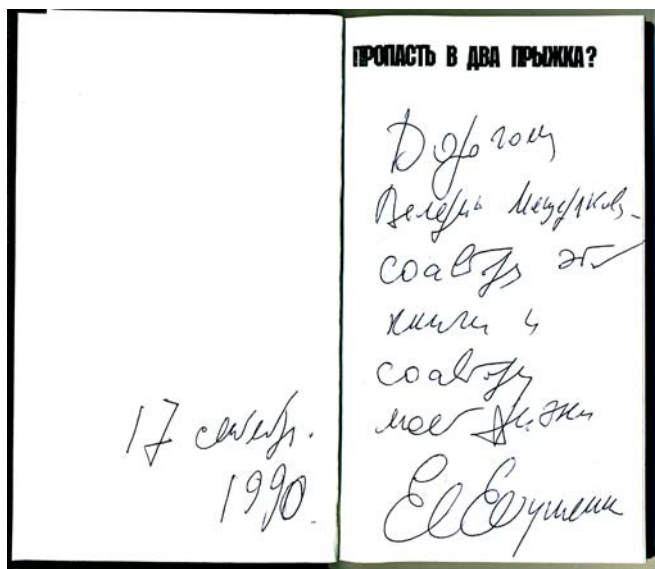 17 сентябр.
1990.
ПРОПАСТЬ В ДВА ПРЫЖКА?
Дорогому
Валерию Мещерякову -
соавтору этой
книги и
соавтору
моей жизни
Ев Евтушенко